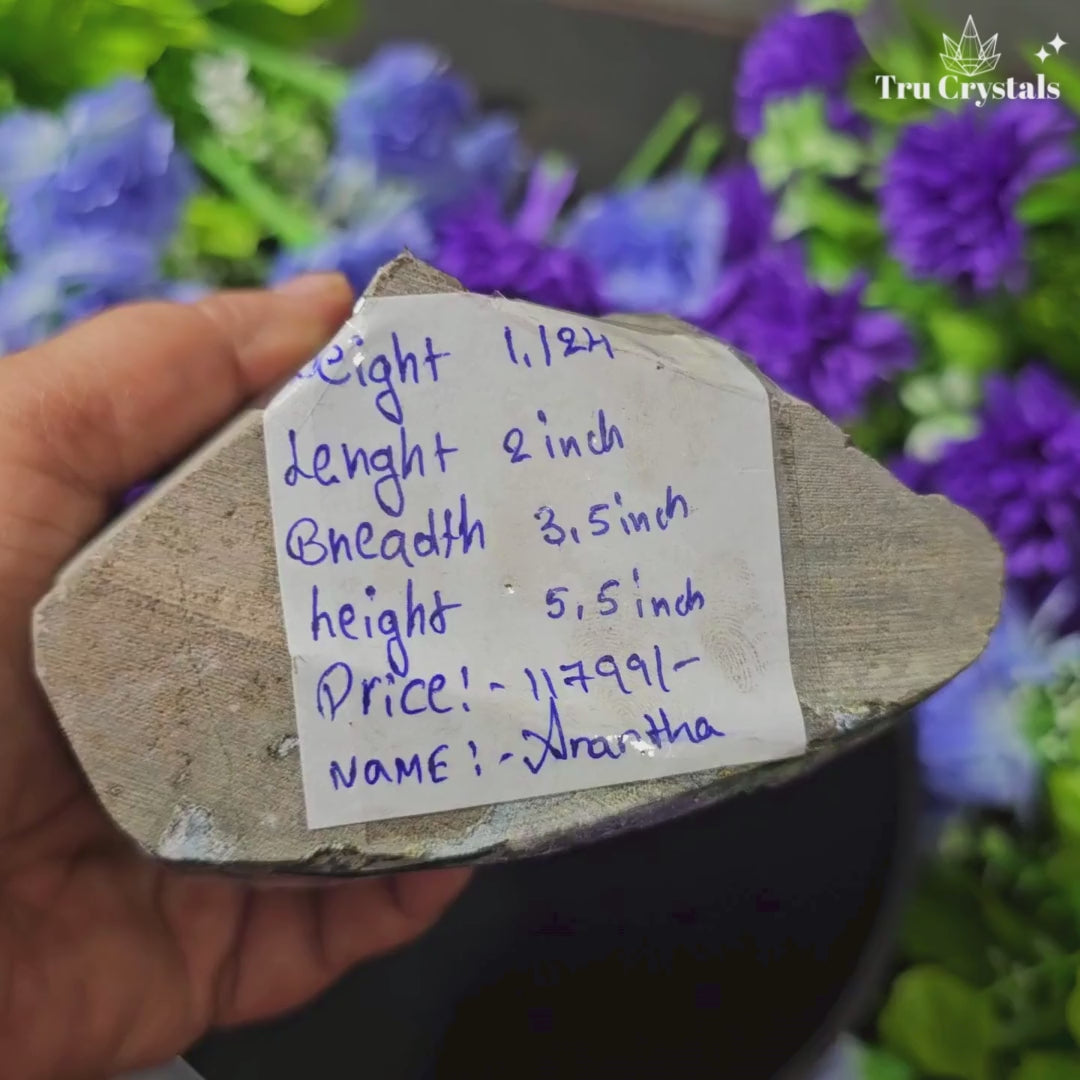 Tru Crystals
weight 1.124
Lenght 2 inch
Breadth 3.5 inch
height 5.5 inch
Price:- 11799/-
NAME:- Anantha